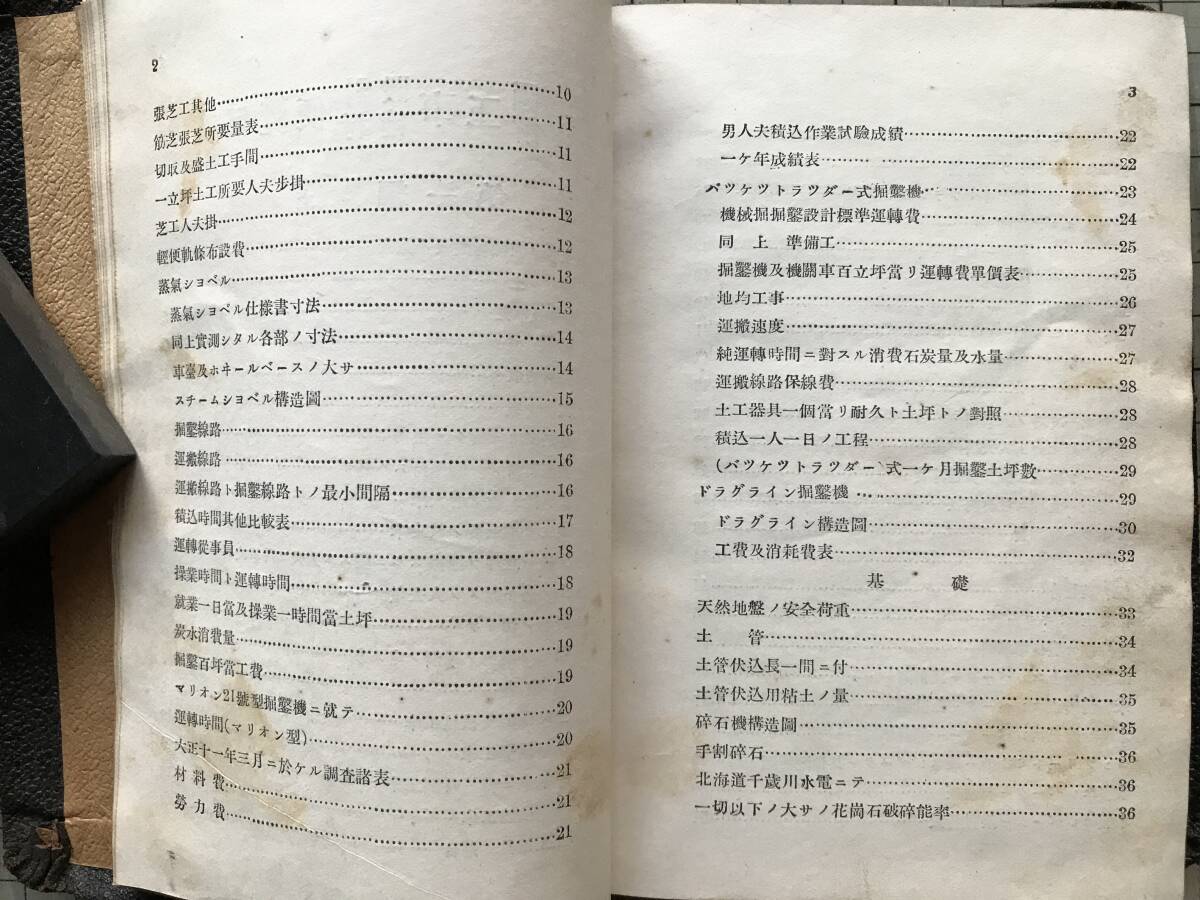 2
張芝工其他……10
筋芝張芝所要量表……11
切取及盛土工手間……11
一立坪土工所要人夫步掛……11
芝工人夫掛……12
輕便軌條布設費……12
蒸氣ショベル……13
蒸氣ショベル仕樣書寸法……13
同上實測シタル各部ノ寸法……14
車臺及ホヰールベースノ大サ……14
スチームショベル構造圖……15
掘鑿線路……16
運搬線路……16
運搬線路ト掘鑿線路トノ最小間隔……16
積込時間其他比較表……17
運轉從事員……18
操業時間ト運轉時間……18
就業一日當及操業一時間當土坪……19
炭水消費量……19
掘鑿百坪當工費……19
マリオン21號型掘鑿機ニ就テ……20
運轉時間(マリオン型)……20
大正十一年三月ニ於ケル調査諸表……21
材料費……21
勞力費……21
3
男人夫積込作業試驗成績……22
一ケ年成績表……22
バツケツトラツダー式掘鑿機……23
機械掘掘鑿設計標準運轉費……24
同上 準備工……25
掘鑿機及機關車百立坪當リ運轉費單價表……25
地均工事……26
運搬速度……27
純運轉時間ニ對スル消費石炭量及水量……27
運搬線路保線費……28
土工器具一個當リ耐久ト土坪トノ對照……28
積込一人一日ノ工程……28
(バツケツトラツダー)式一ケ月掘鑿土坪數……29
ドラグライン掘鑿機……29
ドラグライン構造圖……30
工費及消耗費表……32
基礎
天然地盤ノ安全荷重……33
土管……34
土管伏込長一間ニ付……34
土管伏込用粘土ノ量……35
碎石機構造圖……35
手割碎石……36
北海道千歲川水電ニテ……36
一切以下ノ大サノ花崗石破碎能率……36